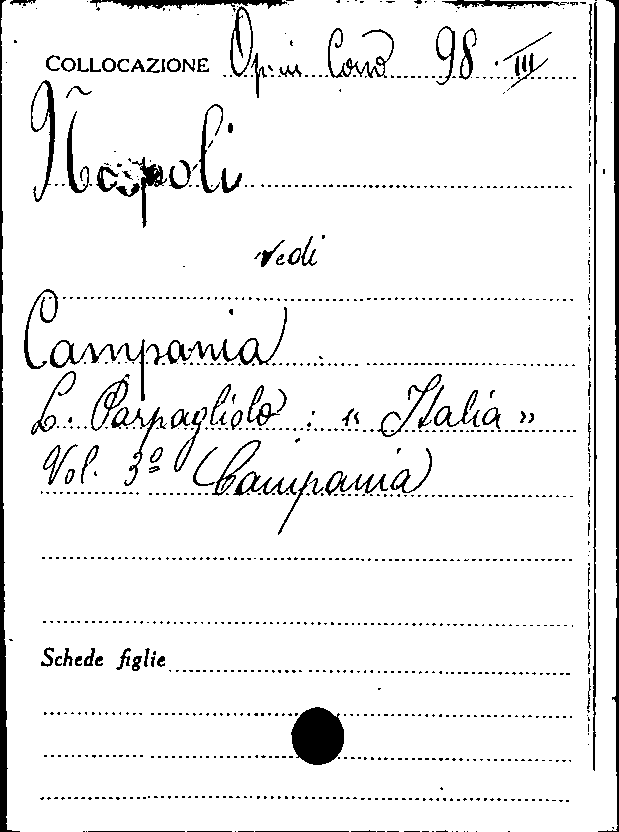 COLLOCAZIONE Op. in Cons 98. III
Napoli
vedi
Campania
L. Parpagliolo : « Italia »
Vol. 3º Campania
Schede figlie